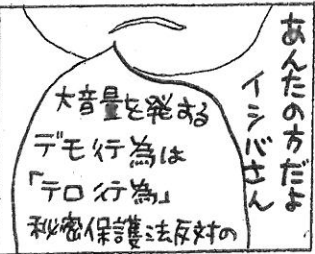 あんたの方だよ
イシバさん
大音量を発する
デモ行為は
「テロ行為」
秘密保護法反対の